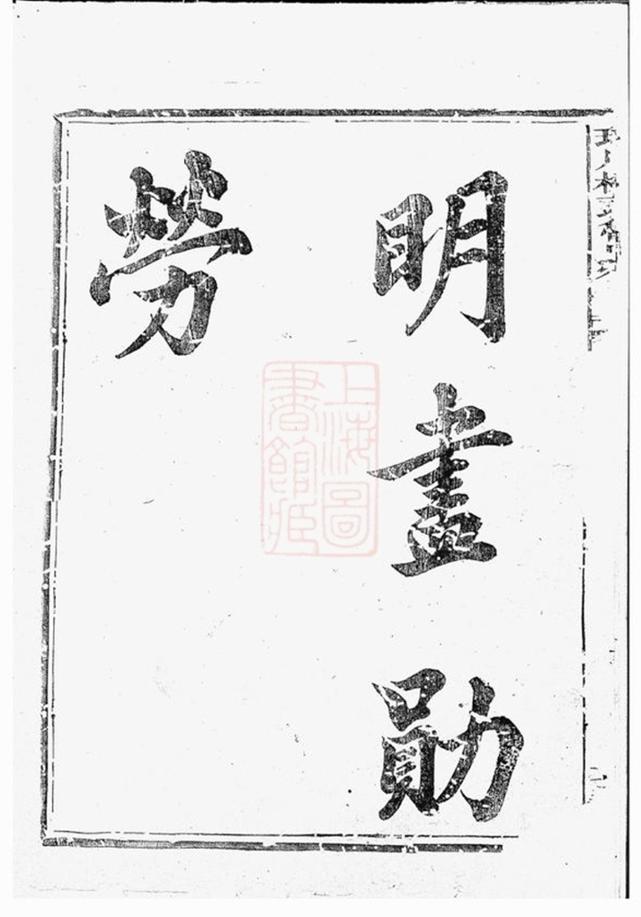 明盡勛
勞
上海圖
書館藏